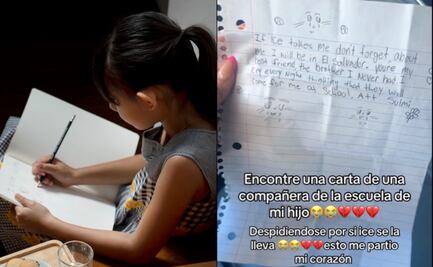 If ice takes me don't forget about
me I will be in El Salvador. youre my
best friend the brother I Never had I
cry every night thinking that they will
come for me at School. Att Sulmi
Encontre una carta de una
compañera de la escuela de
mi hijo😭😭💔💔💔
Despidiendose por si ice se la
lleva 😭😭💔💔esto me partio
mi corazón